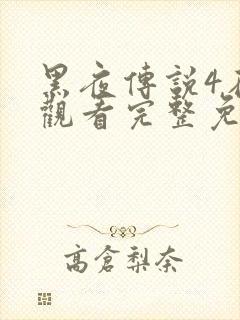 黑夜傳説4
觀看完整免
高倉梨奈